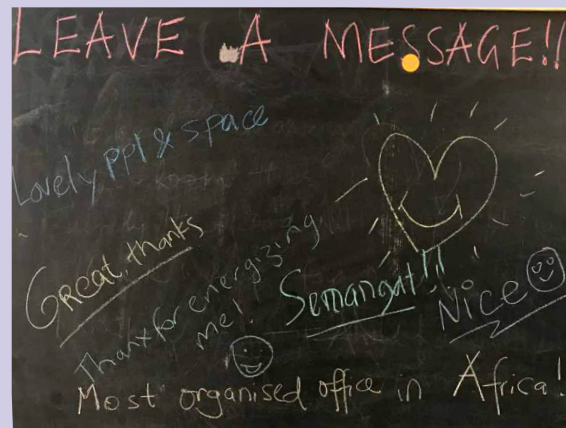 LEAVE A MESSAGE!!
Lovely ppl & space
Great, thanks
Thanx for energizing
me!
Semangat!!!
Nice
Most organised office in Africa!